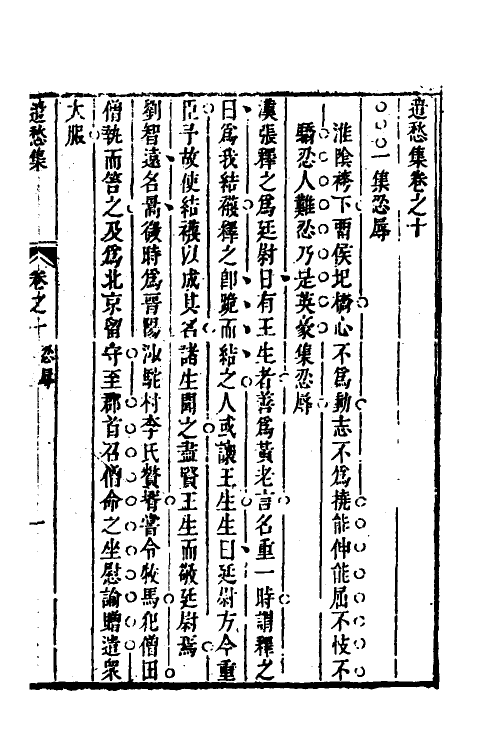 遣愁集卷之十
一集忍辱
淮陰袴下留侯圯橋心不爲動志不爲撓能伸能屈不忮不
驕忍人難忍乃是英豪集忍辱
漢張釋之爲廷尉日有王生者善爲黃老言名重一時謂釋之
曰爲我結襪釋之卽跪而結之人或讓王生生曰廷尉方今重
臣予故使結襪以成其名諸生聞之盡賢王生而敬廷尉焉
劉智遠名暠微時爲晉陽汕駝村李氏贅壻嘗令牧馬犯僧田
僧執而笞之及爲北京留守至郡首召僧命之坐慰諭贈遣衆
大服
遣愁集
卷之十
忍辱
一